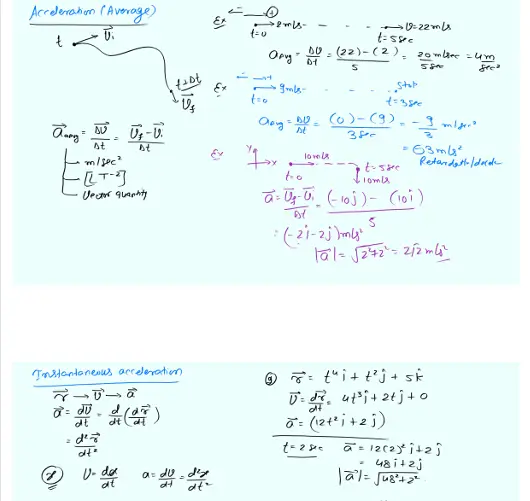 Acceleration (Average)
t → V⃗i
t+Δt
V⃗f
a⃗avg = ΔV⃗/Δt = (V⃗f - V⃗i)/Δt
m/sec²
[L T-2]
Vector quantity
Ex
← - +
→ 2m/s - - - - → V=22m/s
t=0 t=5sec
aavg = ΔV/Δt = ((22)-(2))/5 = 20m/sec/5sec = 4m/sec²
Ex
← - → +
→ 9m/s - - - - Stop
t=0 t=3sec
aavg = ΔV/Δt = ((0)-(9))/3sec = -9/3 m/sec²
= ⊖3m/s²
Ex
y x 10m/s
t=0 t=5sec
10m/s
a⃗ = (V⃗f-V⃗i)/Δt = ((-10j)-(10i))/5
= (-2i-2j)m/s²
|a⃗| = √2²+2² = 2√2 m/s²
Instantaneous acceleration
r⃗ → V⃗ → a⃗
a⃗ = dV⃗/dt = d/dt(dr⃗/dt)
= d²r⃗/dt²
V = dx/dt a = dV/dt = d²x/dt²
r⃗ = t⁴i + t²j + 5k
V⃗ = dr⃗/dt = 4t³i + 2tj + 0
a⃗ = (12t²i + 2j)
t=2sec a⃗ = 12(2)²i+2j
= 48i+2j
|a⃗| = √48²+2²